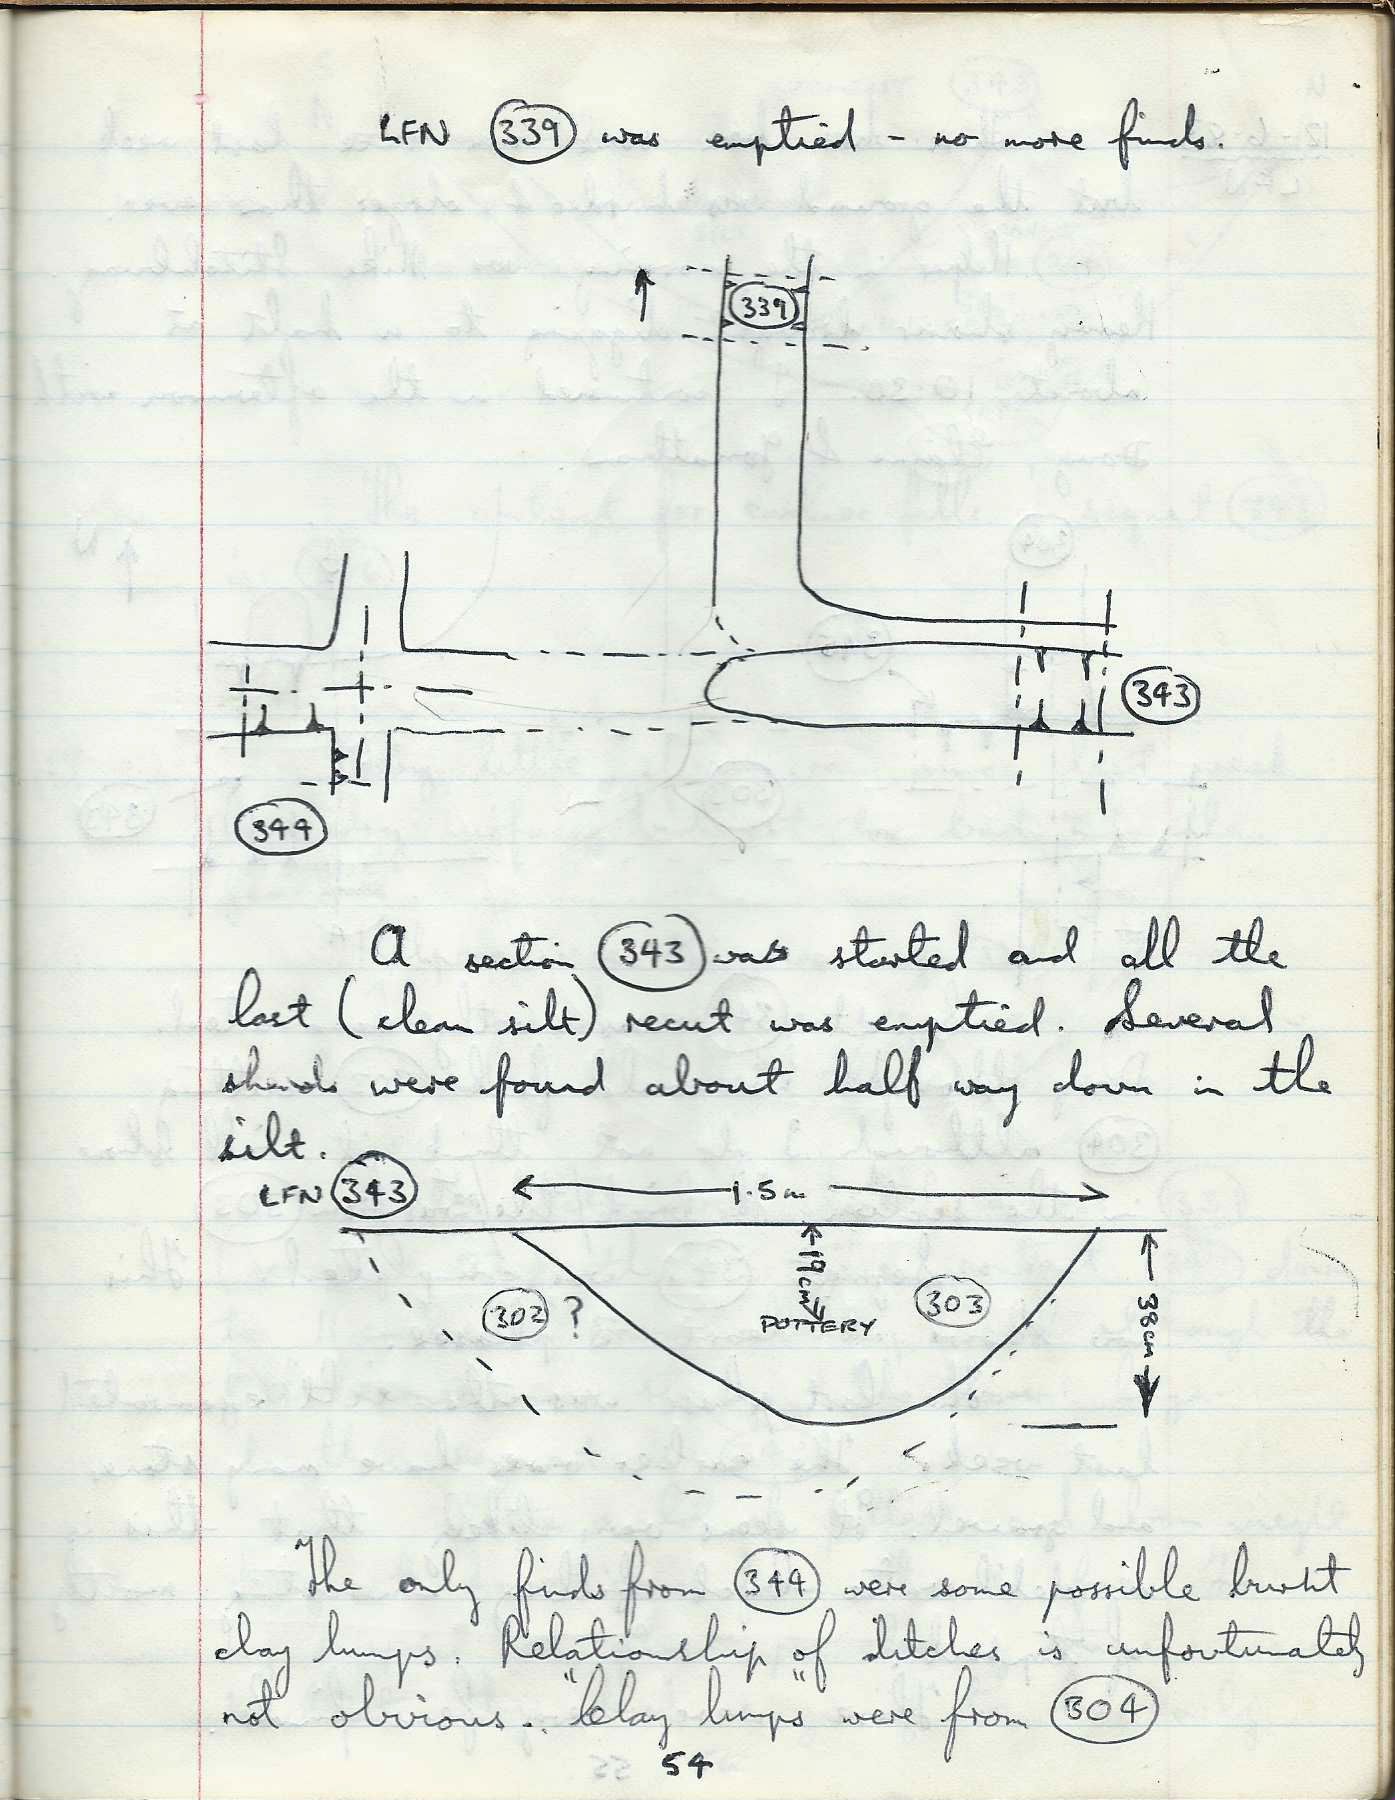 LFN 339 was emptied - no more finds.
339
343
344
A section 343 was started and all the
last (clean silt) recut was emptied. Several
sherds were found about half way down in the
silt.
LFN 343
1.5m
19cm
302 ?
303
POTTERY
38cm
The only finds from 344 were some possible burnt
clay lumps. Relationship of ditches is unfortunately
not obvious. "Clay lumps" were from 304
54